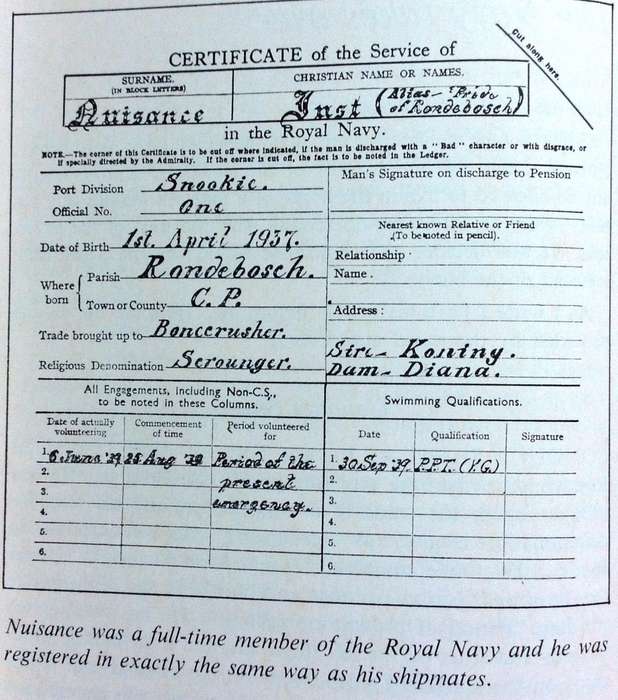 Cut along here.
CERTIFICATE of the Service of
SURNAME. CHRISTIAN NAME OR NAMES.
(IN BLOCK LETTERS)
Nuisance Just (Alias - "Pride of Rondebosch)
in the Royal Navy.
NOTE.—The corner of this Certificate is to be cut off where indicated, if the man is discharged with a "Bad" character or with disgrace, or
if specially directed by the Admiralty. If the corner is cut off, the fact is to be noted in the Ledger.
Port Division Snookie.
Official No. One
Man's Signature on discharge to Pension
Date of Birth 1st. April 1937.
Where born
Parish Rondebosch.
Town or County C. P.
Trade brought up to Bonecrusher.
Religious Denomination Scrounger.
Nearest known Relative or Friend
(To be noted in pencil).
Relationship :
Name .
Address :
Sire - Koning.
Dam - Diana.
All Engagements, including Non-C.S.,
to be noted in these Columns.
Date of actually volunteering Commencement of time Period volunteered for
1. 6 June '39 25 Aug '39 Period of the
2. present
3. emergency.
4.
5.
6.
Swimming Qualifications.
Date Qualification Signature
1. 30 Sep '39. P.P.T. (V.G.)
2.
3.
4.
5.
6.
Nuisance was a full-time member of the Royal Navy and he was
registered in exactly the same way as his shipmates.